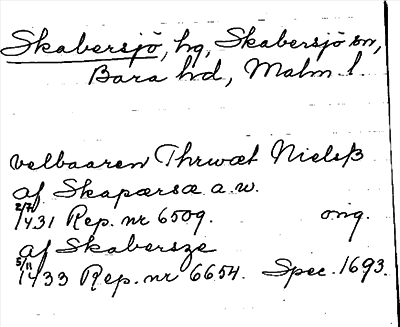 Skabersjö, hg, Skabersjö sn,
Bara hd, Malm. l.
velbaaren Thrwæt Nielsß
af Skapærsæ a.w.
2/7 1431 Rep. nr 6509. ong.
af Skabersze
5/11 1433 Rep. nr 6654. Spec. 1693.